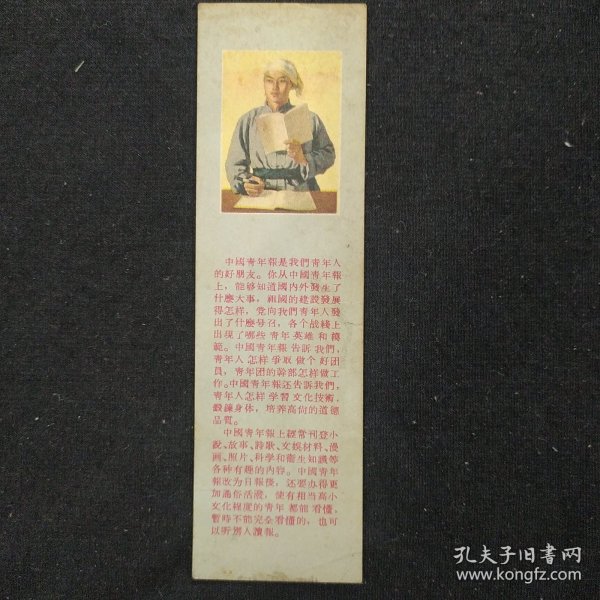 中國青年報是我們青年人
的好朋友。你从中國青年報
上，能够知道國内外發生了
什麽大事，祖國的建設發展
得怎样，党向我們青年人發
出了什麽号召，各个战綫上
出現了哪些青年英雄和模
範。中國青年報告訴我們，
青年人怎样爭取做个好团
員，青年团的幹部怎样做工
作。中國青年報还告訴我們，
青年人怎样学習文化技術，
鍛鍊身体，培养高尙的道德
品質。
中國青年報上經常刊登小
說、故事、詩歌、文娱材料、漫
画、照片、科学和衛生知識等
各种有趣的内容。中國青年
報改为日報後，还要办得更
加通俗活潑，使有相当高小
文化程度的青年都能看懂，
暫時不能完全看懂的，也可
以听别人讀報。
孔夫子旧書网
www.kongfz.com